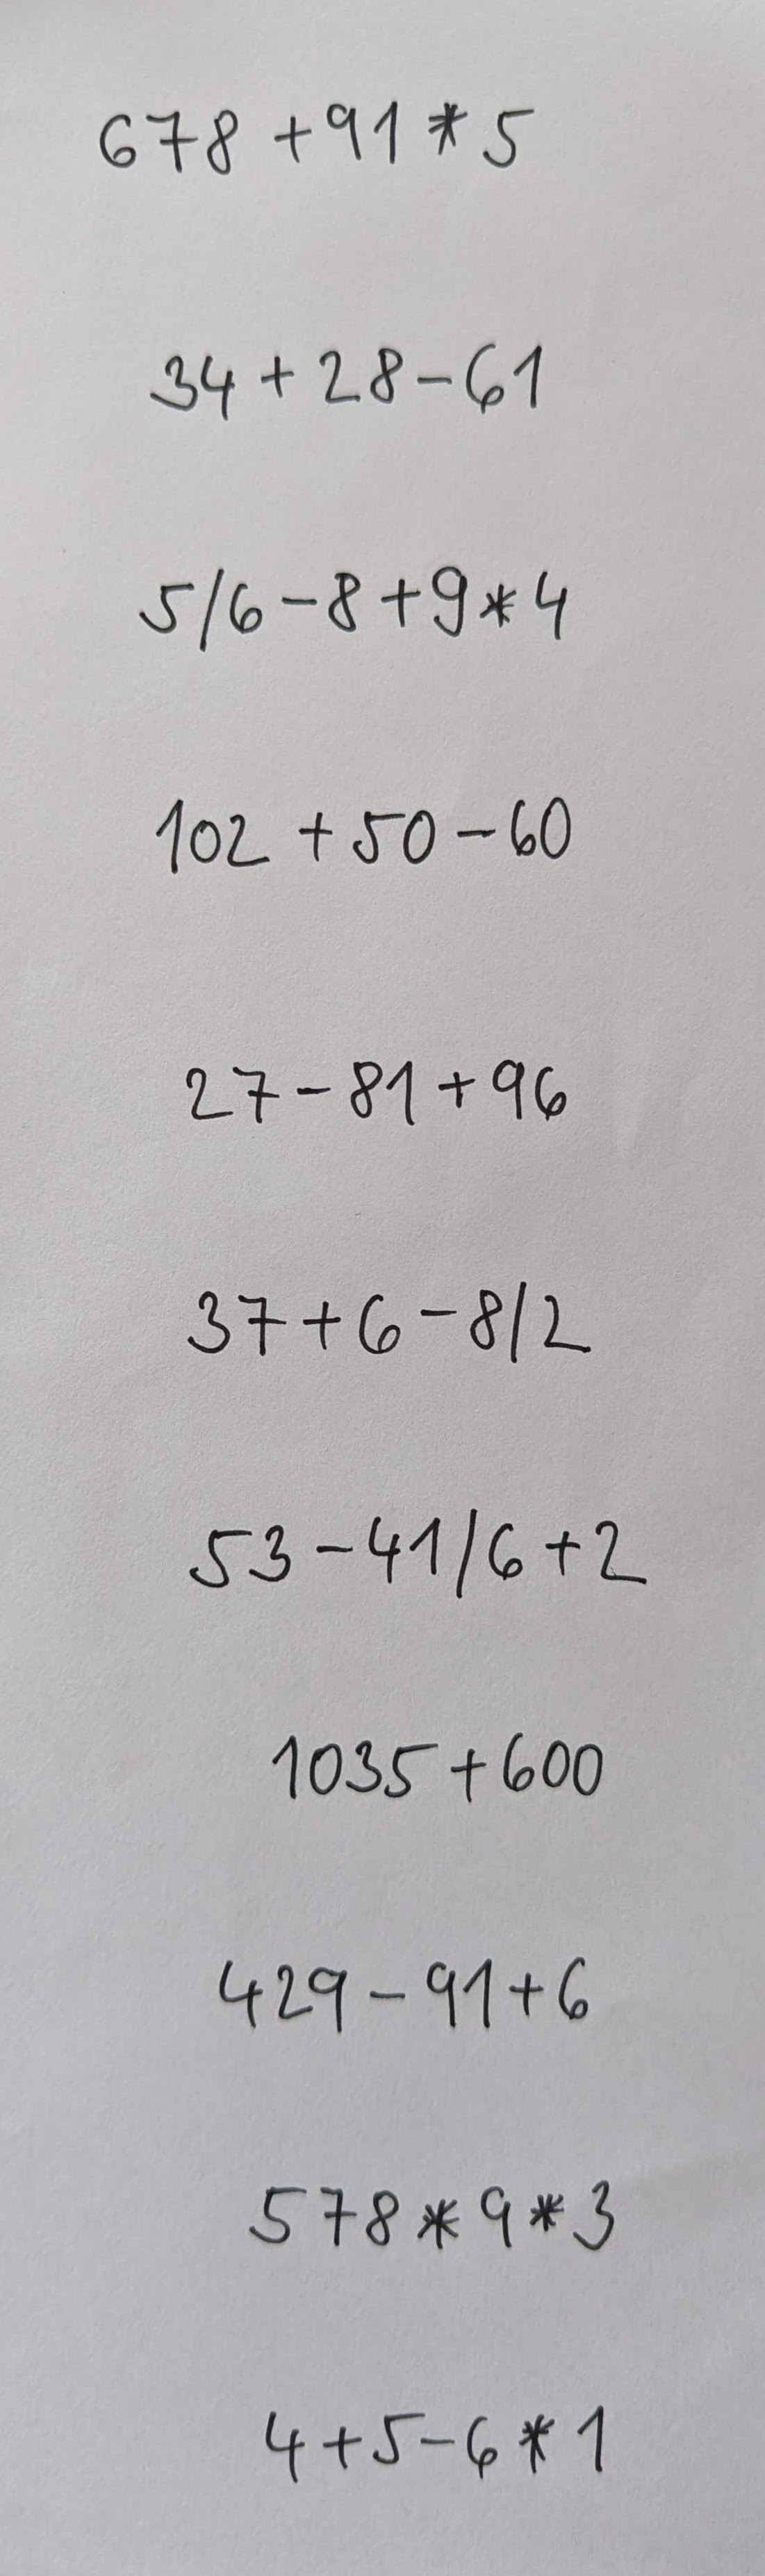 678+91*5
34+28-61
5/6-8+9*4
102+50-60
27-81+96
37+6-8/2
53-41/6+2
1035+600
429-91+6
578*9*3
4+5-6*1